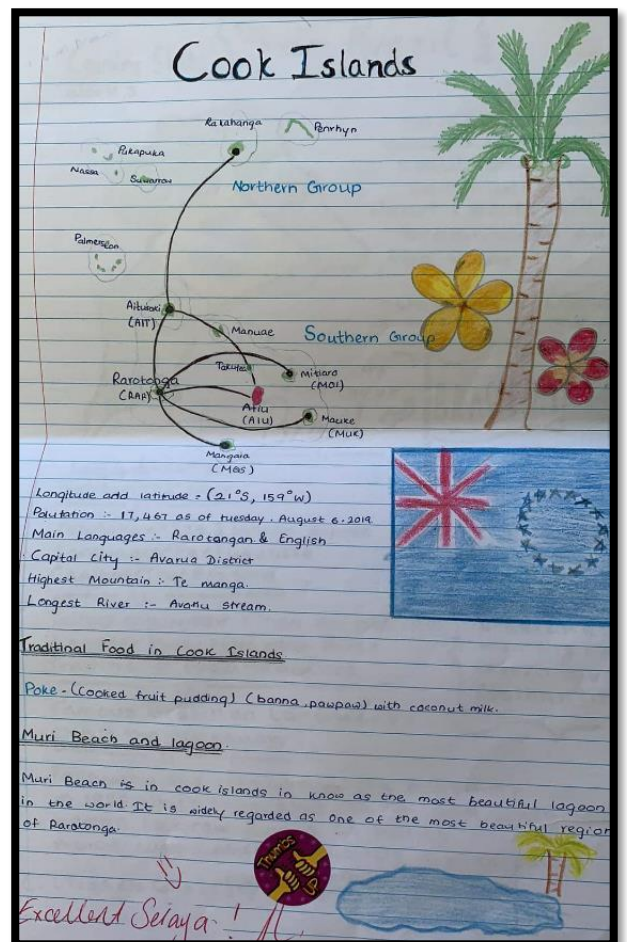 Cook Islands
Rakahanga
Penrhyn
Pukapuka
Nassa
Suwarrow
Northern Group
Palmerston
Aitutaki
(AIT)
Manuae
Southern Group
Takutea
Mitiaro
(MOI)
Rarotonga
(RAR)
Atiu
(AIU)
Mauke
(MUK)
Mangaia
(MGS)
Longitude and latitude = (21°S, 159°W)
Polutation :- 17,467 as of tuesday. August 6. 2019
Main Languages :- Rarotongan & English
Capital City :- Avarua District
Highest Mountain :- Te manga.
Longest River :- Avanu stream.
Traditinal Food in Cook Islands
Poke - (Cooked fruit pudding) (banna, pawpaw) with coconut milk.
Muri Beach and lagoon.
Muri Beach is in cook islands in know as the most beautiful lagoon
in the world. It is widely regarded as one of the most beautiful region
of Rarotonga.
Thumbs
UP
Excellent Seraya !